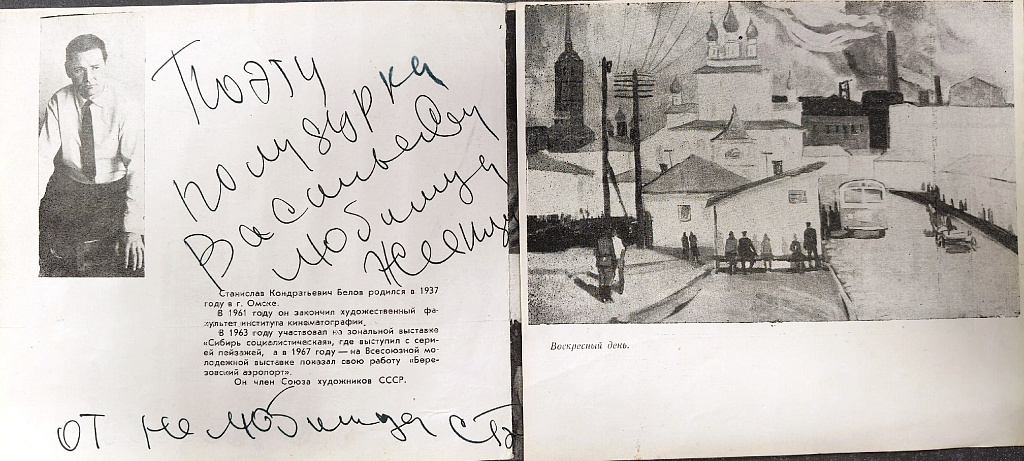 Поэту
Васильеву
любимцу
Женщ
Станислав Кондратьевич Белов родился в 1937
году в г. Омске.
В 1961 году он закончил художественный фа-
культет института кинематографии.
В 1963 году участвовал на зональной выставке
«Сибирь социалистическая», где выступил с сери-
ей пейзажей, а в 1967 году — на Всесоюзной мо-
лодежной выставке показал свою работу «Бере-
зовский аэропорт».
Он член Союза художников СССР.
от не любимца Ста
Воскресный день.